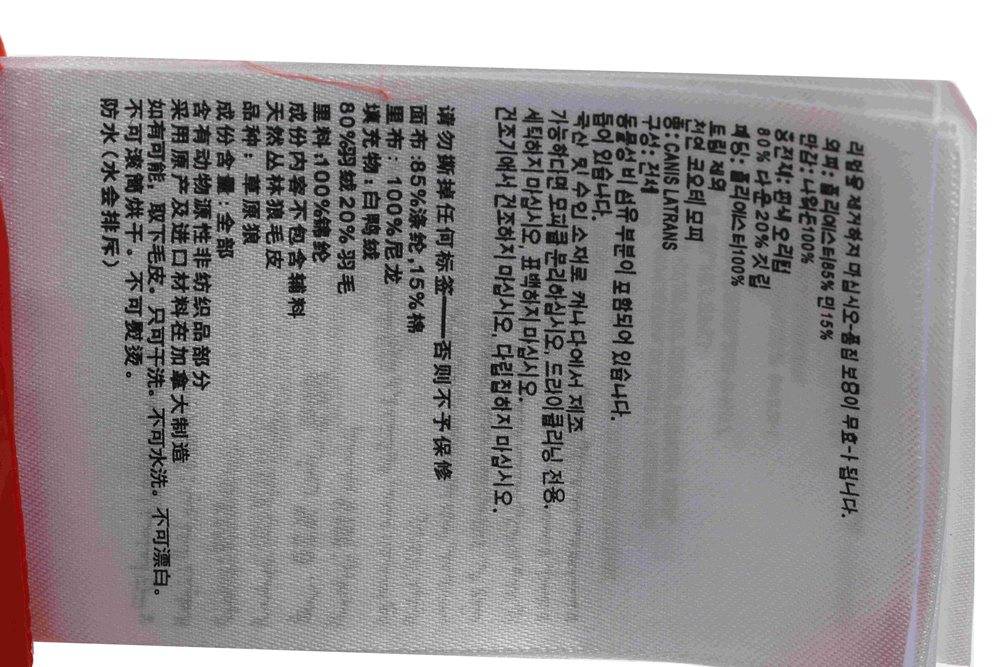 라벨울 제거하지 마십시오-품짐 보믕이 무효-ㅏ 됩니다.
외피: 폴리에스터85% 민15%
안감: 나일론100%
충전재: 흰색 오리텀
80%다운 20%깃림
패딩: 폴리에스터100%
트림 제외
천연 코요테 모피
종: CANIS LATRANS
구성: 전체
동물성 비 섬유 부분이 포함되어 있습니다.
국산 및 수입 소재로 캐나다에서 제조
돕어 있습니다.
가능하다면 모피를 분리하십시오, 드라이클리닝 전용,
세탁하지 마십시오, 표백하지 마십시오,
건조기에서 건조하지 마십시오, 다림집하지 마십시오,
请勿撕掉任何标签——否则不予保修
面布:85%涤纶,15%棉
里布：100%尼龙
填充物：白鸭绒
80%羽绒20%羽毛
里料:100%锦纶
成份内容不包含辅料
天然丛林狼毛皮
品种：草原狼
成份含量:全部
含有动物源性非纺织品部分
采用原产及进口材料在加拿大制造
如有可能，取下毛皮。只可干洗。不可水洗。不可漂白。
不可滚筒烘干。不可熨烫。
防水（水会排斥）